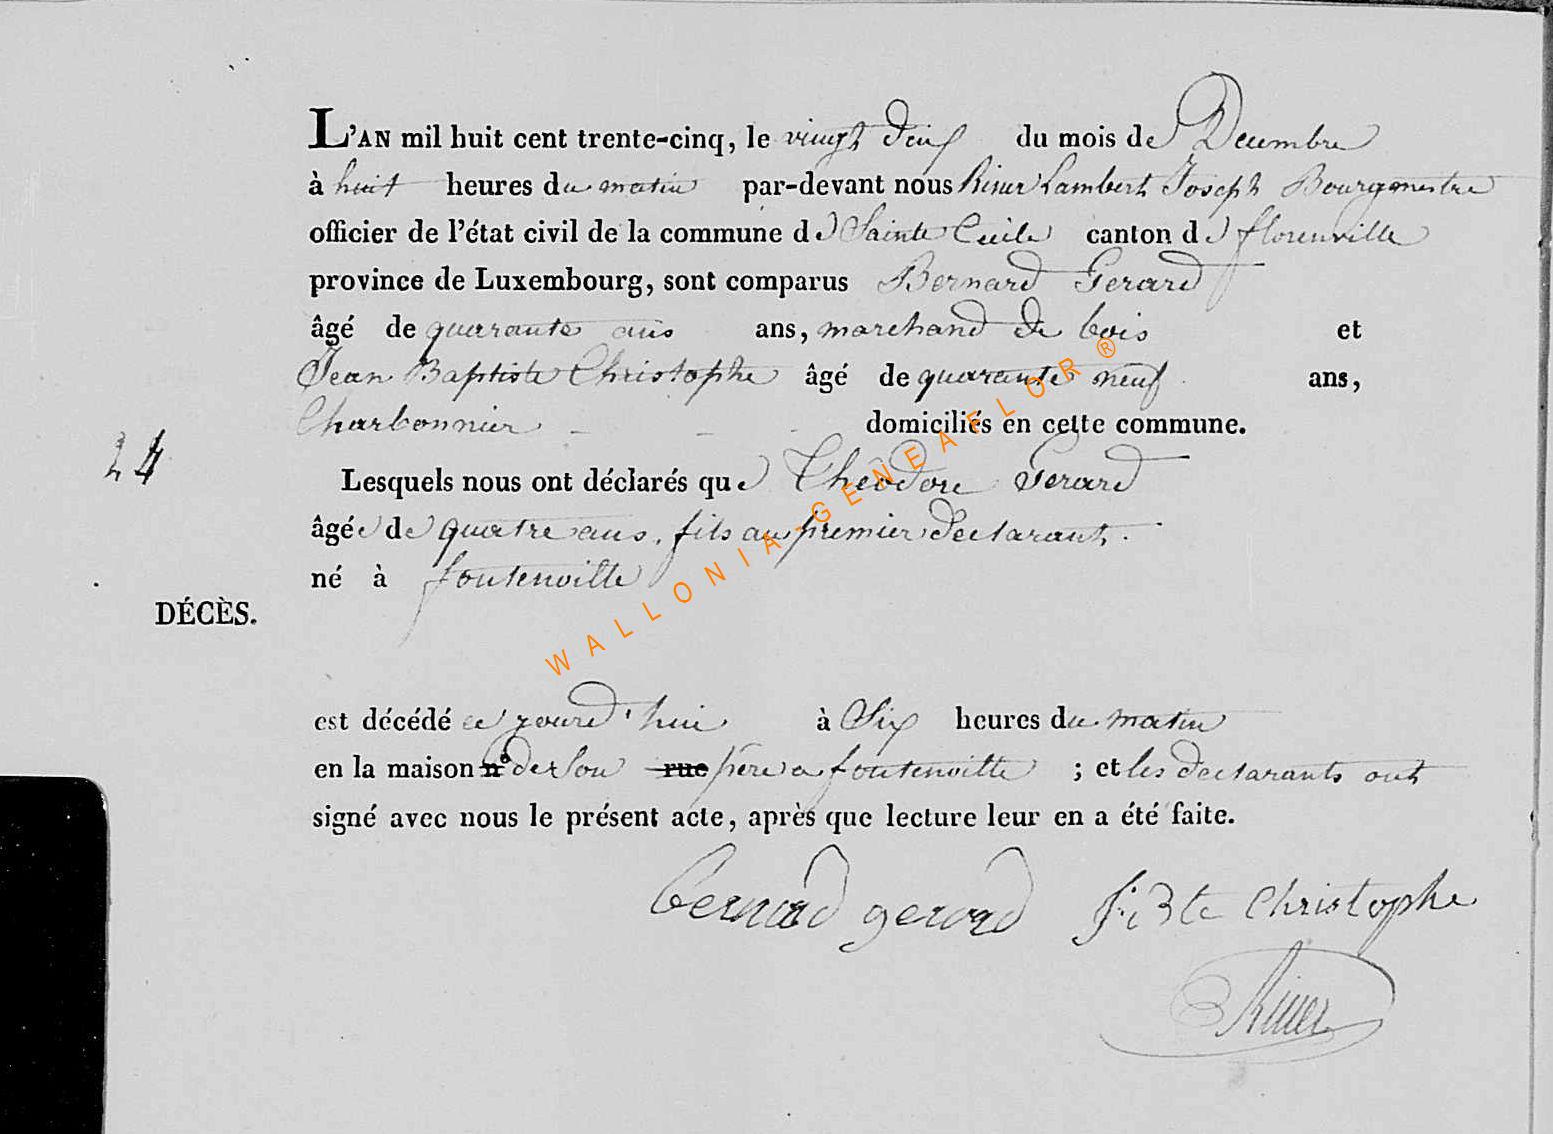 L'AN mil huit cent trente-cinq, le vingt deux du mois de Decembre
à huit heures du matin par-devant nous Riner Lambert Joseph Bourgmestre
officier de l'état civil de la commune de Sainte Cecile canton de florenville
province de Luxembourg, sont comparus Bernard Gerard
âgé de quarante ans ans, marchand de bois et
Jean Baptiste Christophe âgé de quarante neuf ans,
Charbonnier domiciliés en cette commune.
24
Lesquels nous ont déclarés que Théodore Gerard
âgé de quatre ans, fils au premier declarant.
né à fontenoille
DÉCÈS.
est décédé ce jourd'hui à Six heures du matin
en la maison n° de son rue père a fontenoille ; et les declarants ont
signé avec nous le présent acte, après que lecture leur en a été faite.
bernard gerard J: Bte Christophe
Riner
WALLONIA-GENEAFLOR®